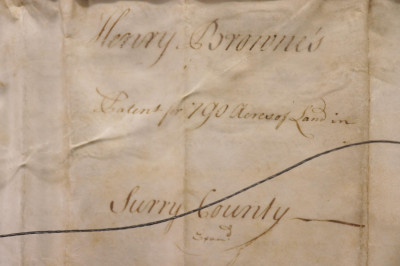 Henry Browne's
Patent for 790 Acres of Land in
Surry County